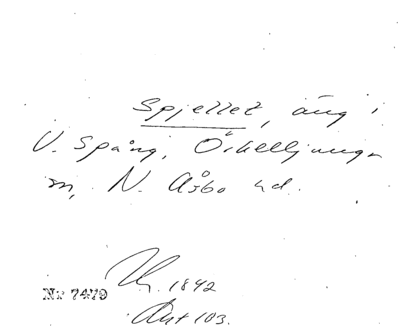 Spjellet, äng i
V. Spång, Örkelljunga
sn, N. Åsbo hd.
1842
Nr 7479
Akt 103.